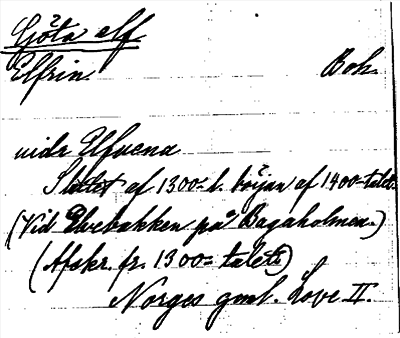 Göta elf
Elfrin Boh.
uida Elfuena
Slutet af 1300- l. början af 1400-talet.
(Vid Elvebakken på Bagaholmen.)
(Afskr. fr. 1300-talet)
Norges gml. Love II.